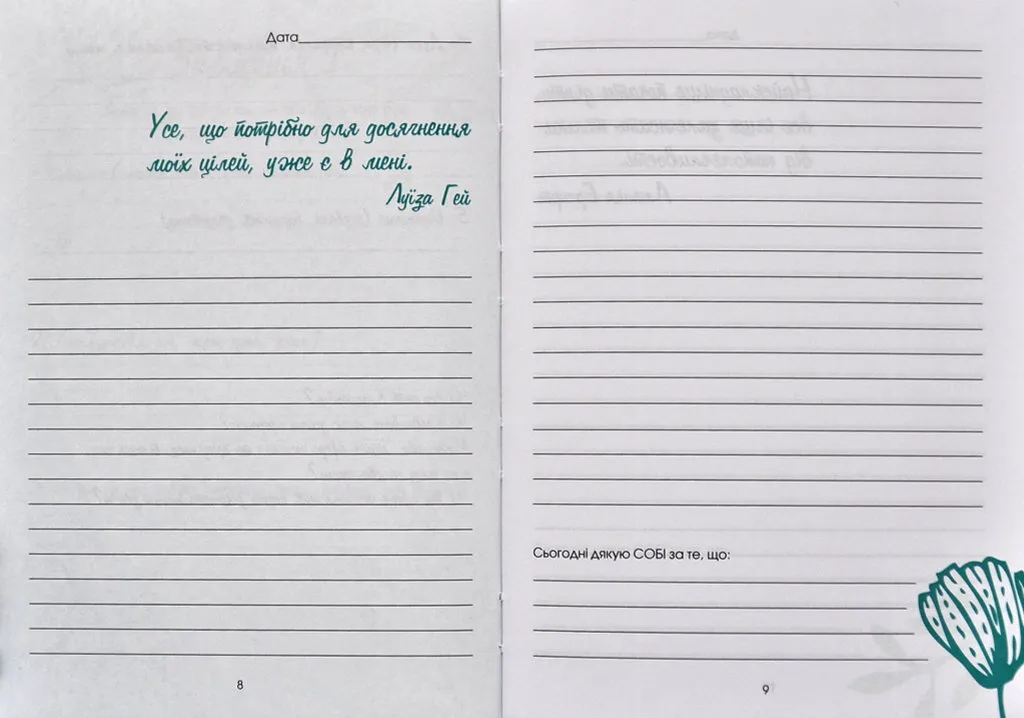 Дата
Усе, що потрібно для досягнення
моїх цілей, уже є в мені.
Луїза Гей
8
Сьогодні дякую СОБІ за те, що:
9